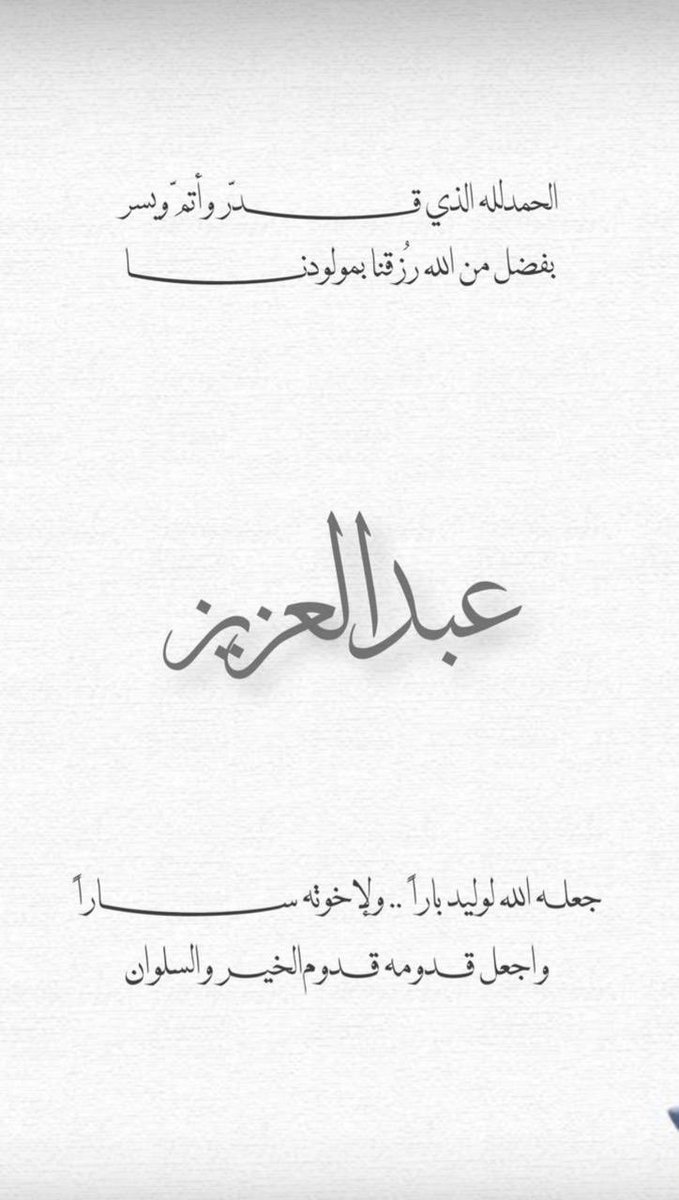 الحمدلله الذي قـــدّر وأتمّ ويسر
بفضل من الله رُزقنا بمولودنـــا
عبدالعزيز
جعلـه الله لوليد باراً .. ولإخوته ســـاراً
واجعل قـدومه قـدوم الخيـر والسلوان